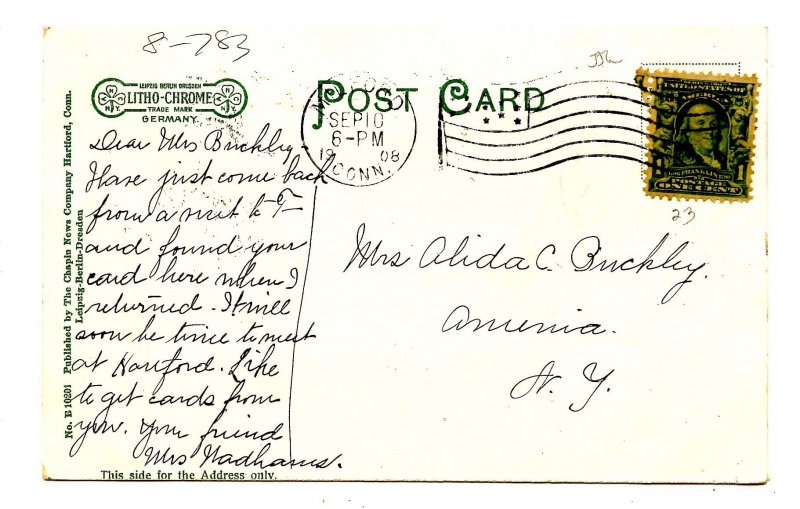 8-783
LEIPZIG BERLIN DRESDEN
LITHO-CHROME
TRADE MARK
GERMANY
POST CARD
SEP 10
6-PM
19 08
CONN.
UNITED STATES OF AMERICA
FRANKLIN
1 1
POSTAGE
ONE CENT
23
No. E 10201 Published by The Chapin News Company Hartford, Conn.
Leipzig-Berlin-Dresden
Dear Mrs Buckley-
Have just come back
from a visit to
and found your
card here when I
returned. It will
soon be time to meet
at Hartford. Like
to get cards from
you. Your friend
Mrs Wadhams.
Mrs Alida C. Buckley.
Amenia.
N. Y.
This side for the Address only.